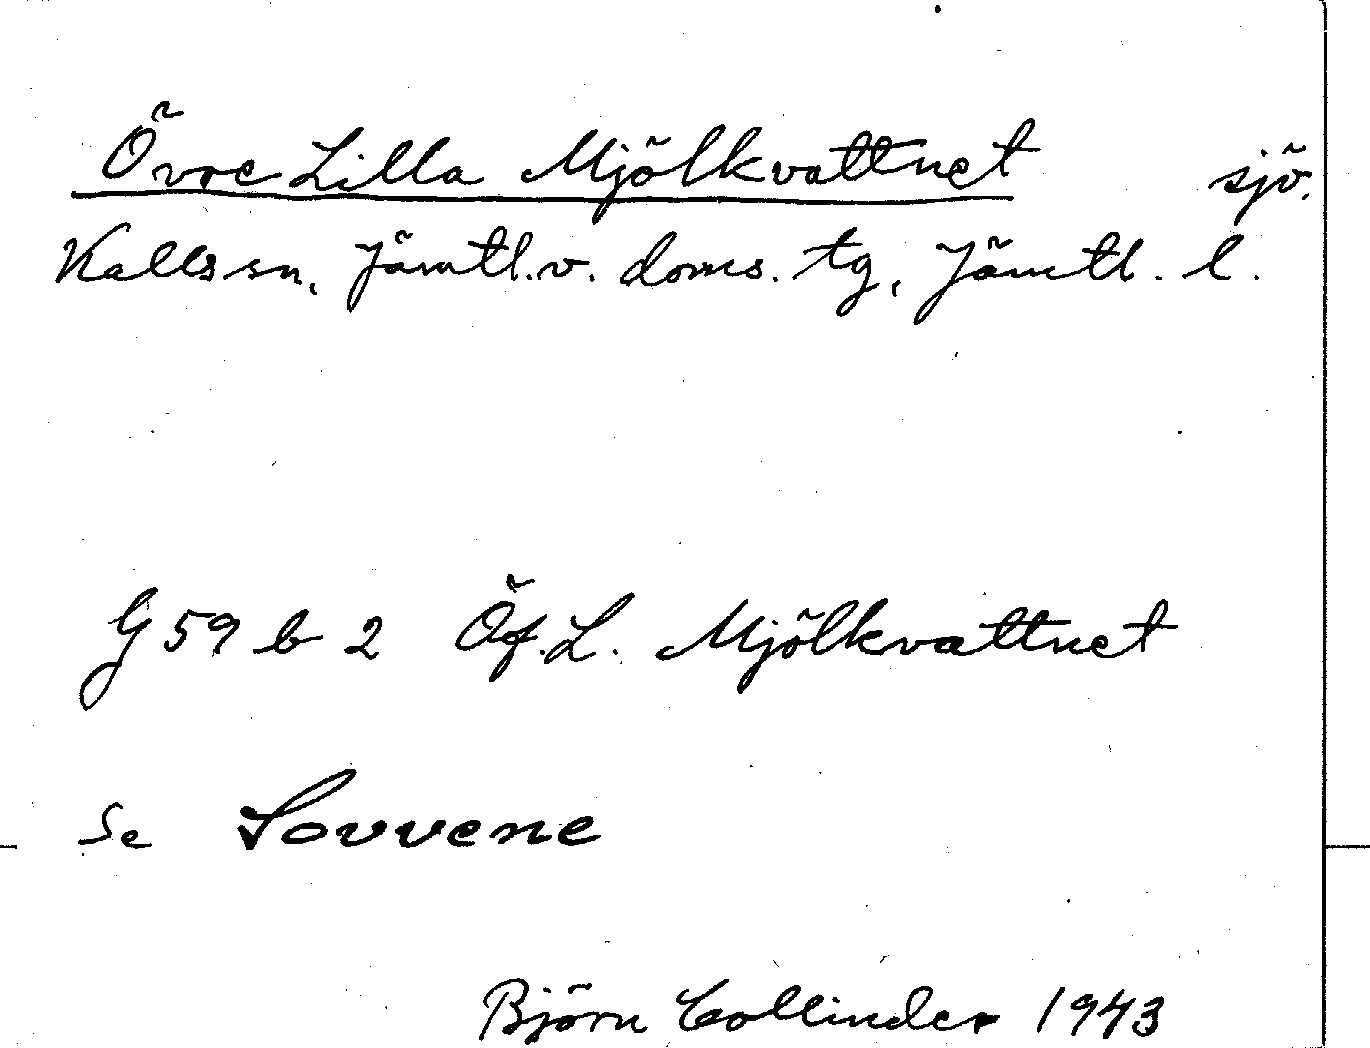 Övre Lilla Mjölkvattnet sjö.
Kalls sn, Jämtl. v. doms. tg, Jämtl. l.
G 59 b 2 Öf. L. Mjölkvattnet
Se Sovvene
Björn Collinder 1943